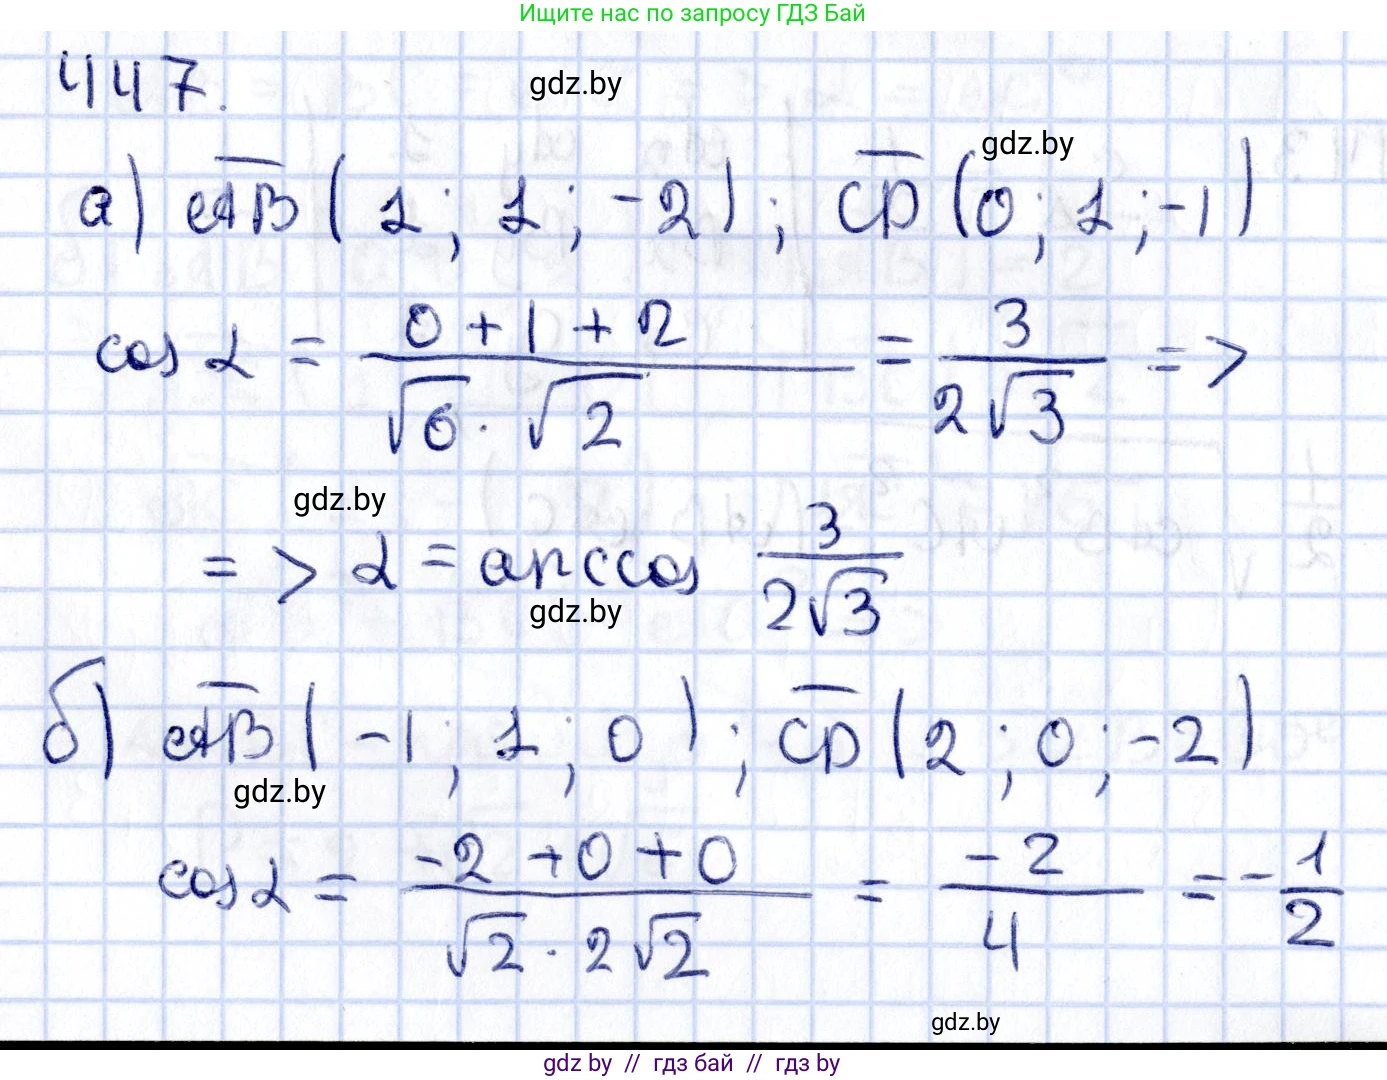 Ищите нас по запросу ГДЗ Бай
447.
gdz.by
gdz.by
а) AB̅ (1; 1; -2); CD̅ (0; 1; -1)
cos α = (0 + 1 + 2)/(√6 · √2) = 3/(2√3) =>
gdz.by
=> α = arccos 3/(2√3)
gdz.by
б) AB̅ (-1; 1; 0); CD̅ (2; 0; -2)
gdz.by
cos α = (-2 + 0 + 0)/(√2 · 2√2) = -2/4 = -1/2
gdz.by
gdz by // гдз бай // гдз by